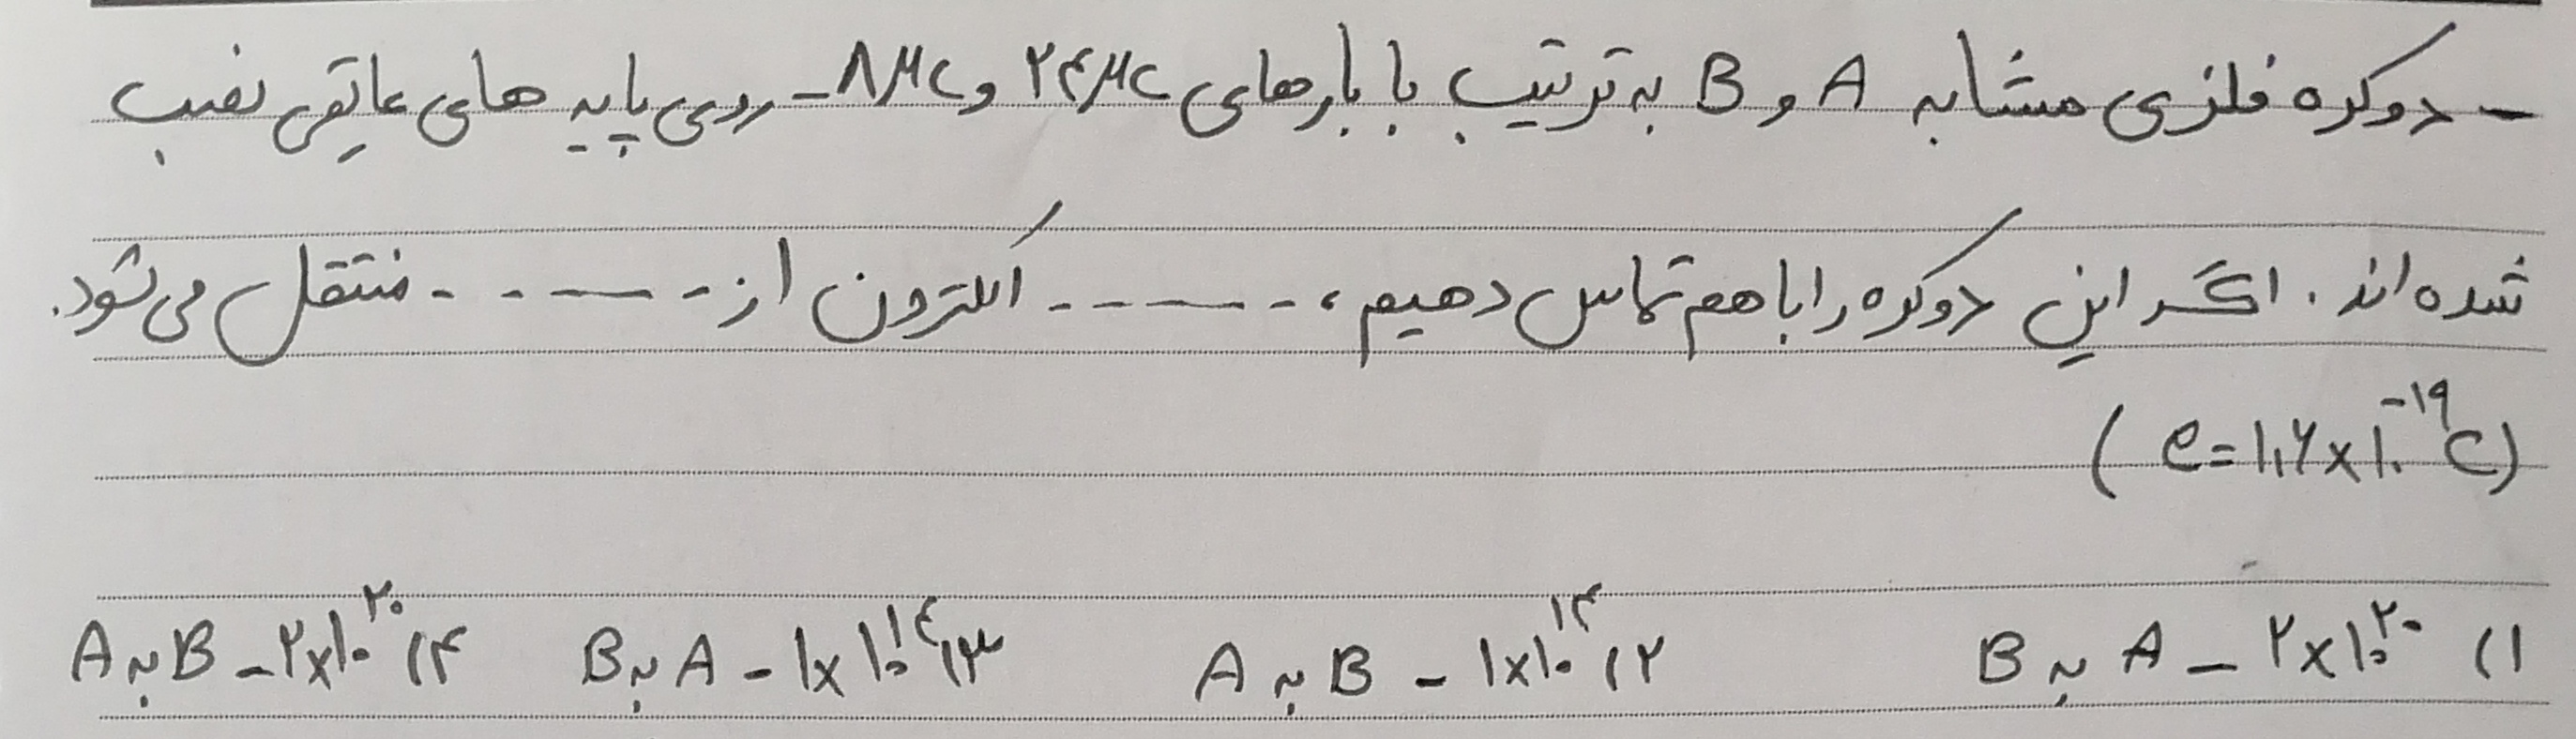 - دو کره فلزی مشابه A و B به ترتیب با بارهای ۲۴μC و ۸μC- روی پایه های عایقی نصب
شده اند . اگر این دو کره را با هم تماس دهیم ، ------ الکترون از ------ منتقل می شود.
(e=۱,۶×۱۰^-۱۹ C)
۱) ۲×۱۰^۲۰ - A به B ۲) ۱×۱۰^۱۴ - B به A ۳) ۱×۱۰^۱۴ - A به B ۴) ۲×۱۰^۲۰ - B به A